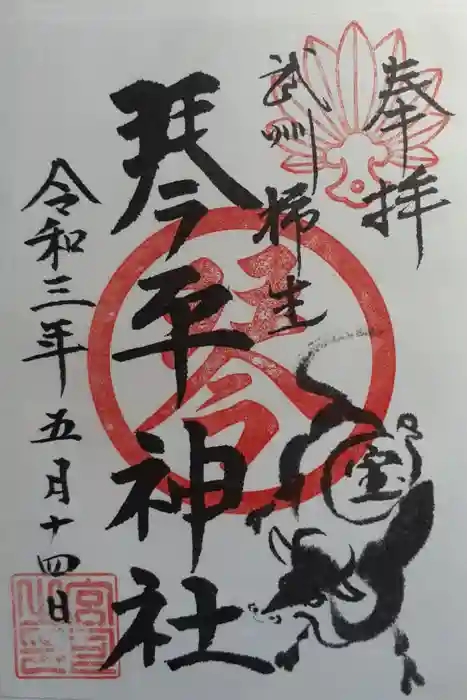 奉拝
武州 柿生
琴平神社
令和三年五月十四日
琴
宝